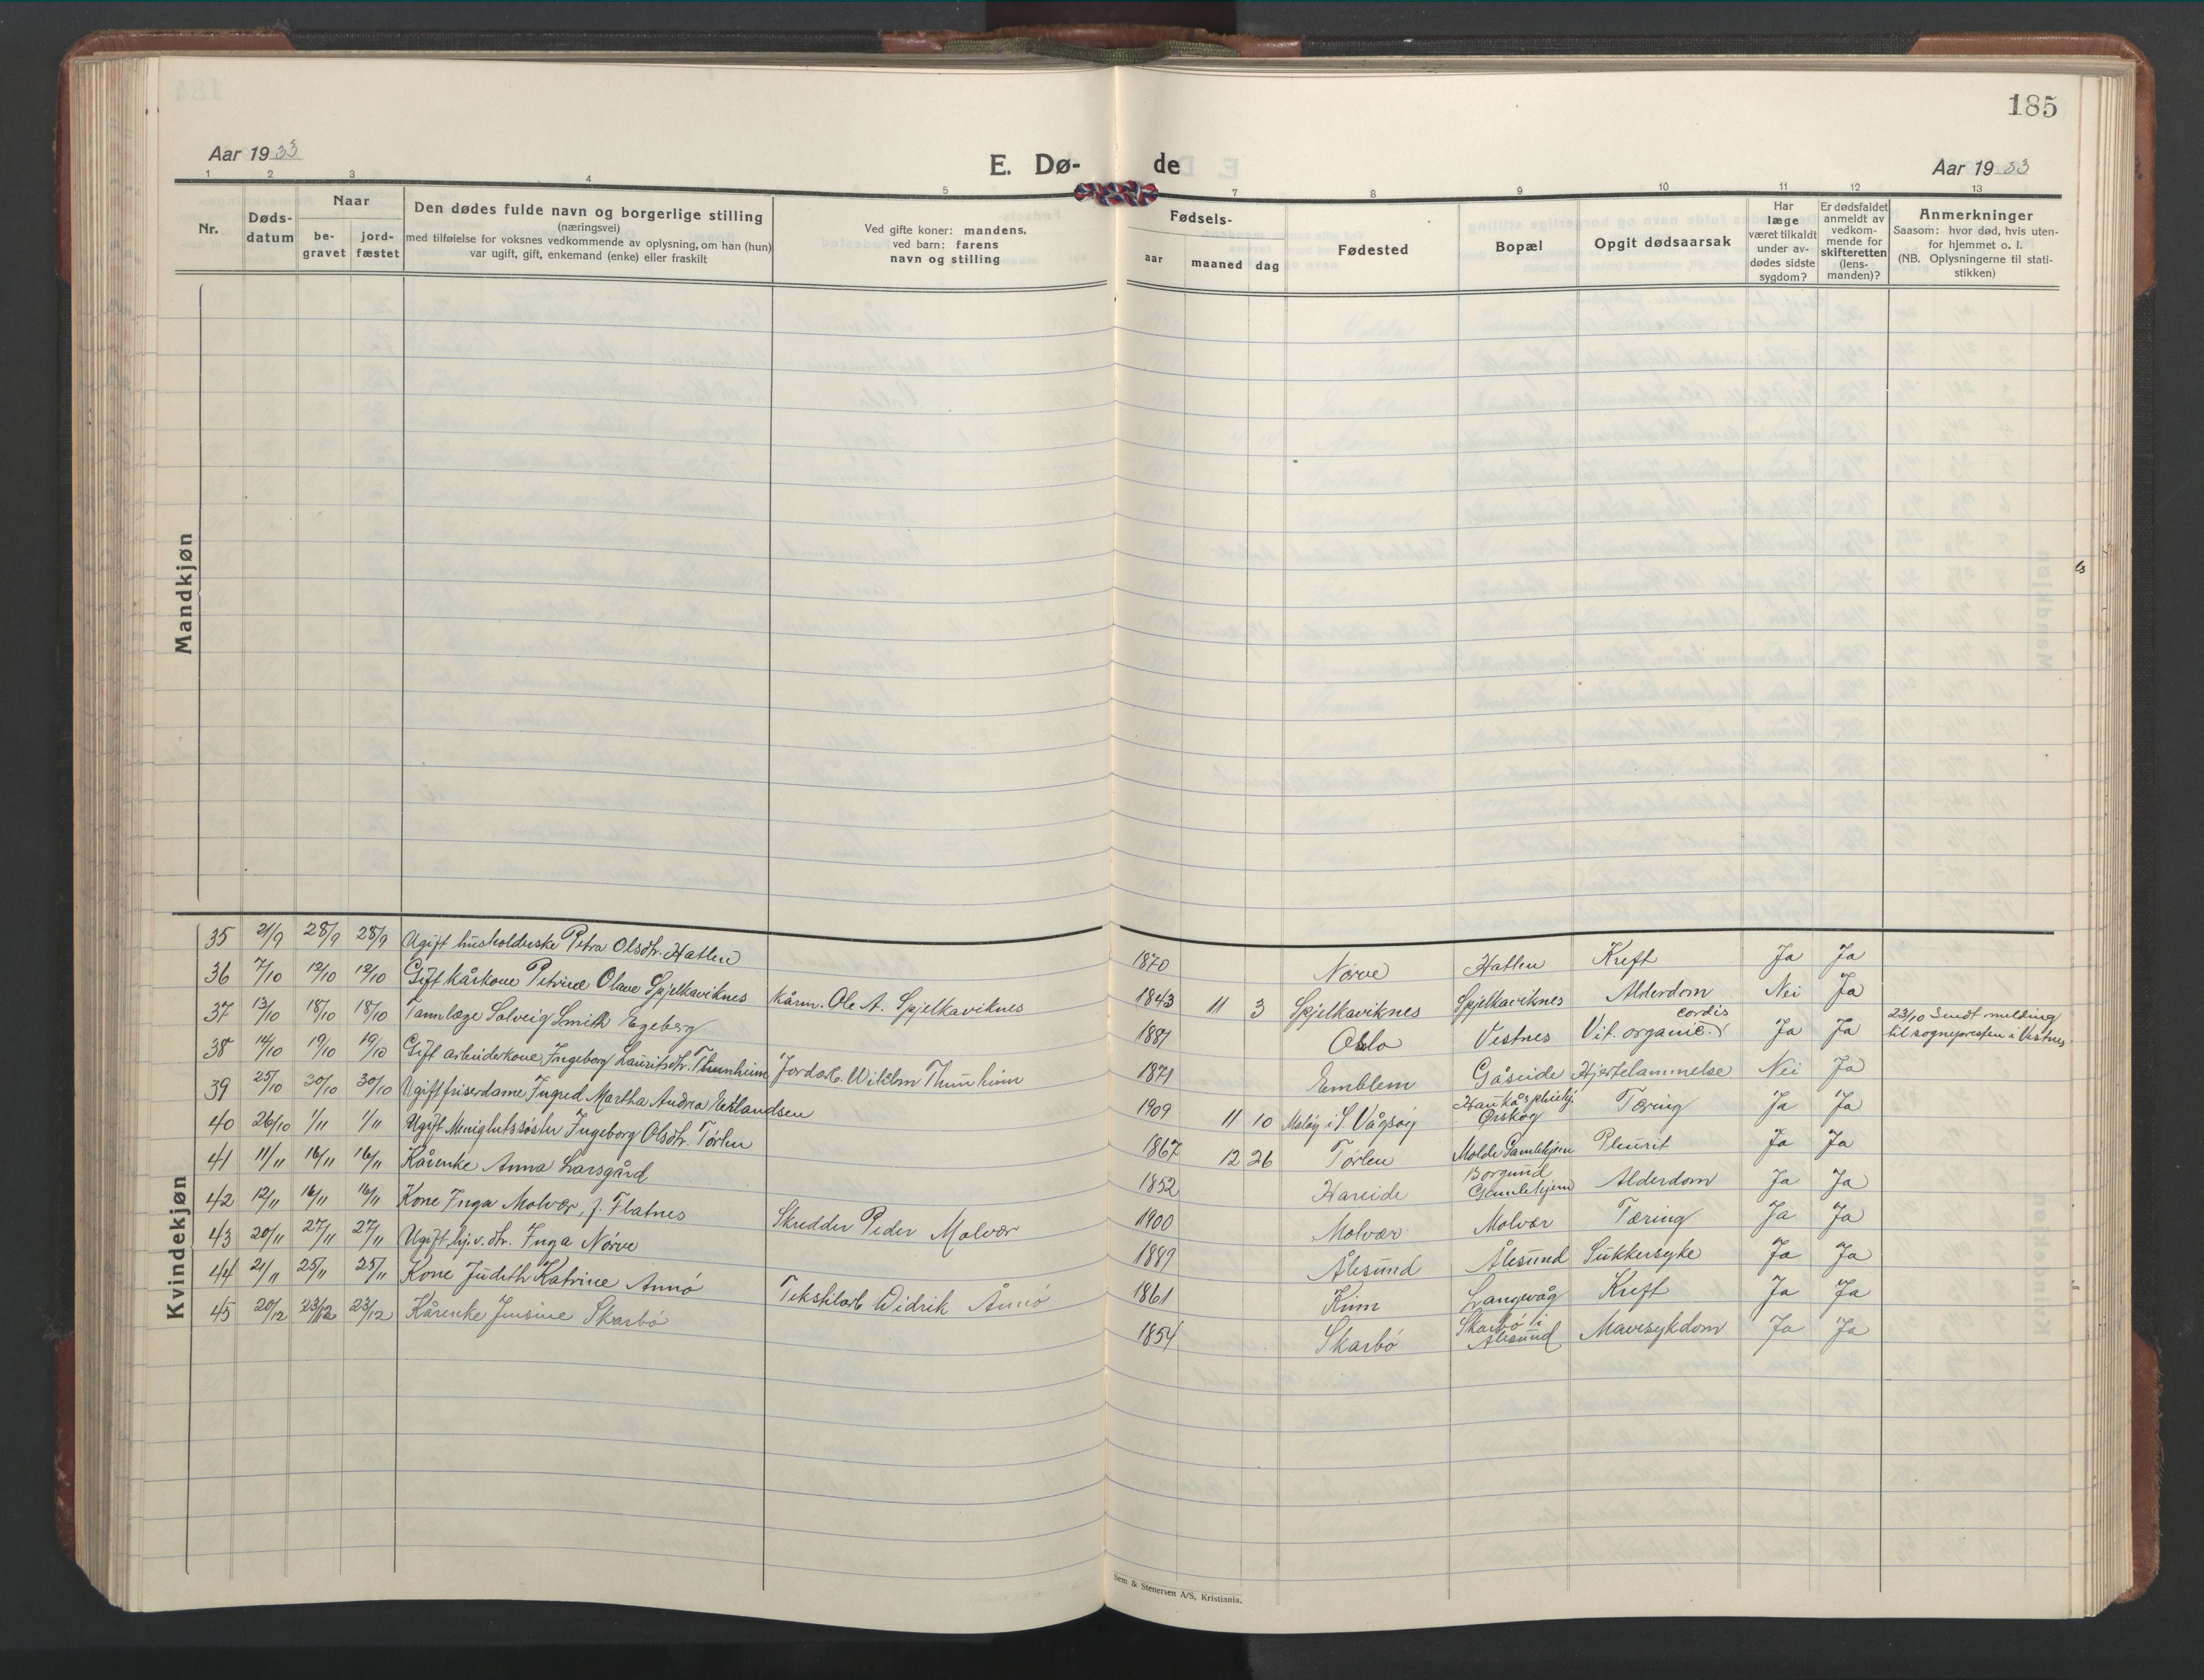 185
Aar 1933
E. Dø-
de
Aar 1933
1 2 3 4 5 7 8 9 10 11 12 13
Nr.
Døds-
datum
Naar
be-
gravet
jord-
fæstet
Den dødes fulde navn og borgerlige stilling
(næringsvei)
med tilføielse for voksnes vedkommende av oplysning, om han (hun)
var ugift, gift, enkemand (enke) eller fraskilt
Ved gifte koner: mandens,
ved barn: farens
navn og stilling
Fødsels-
aar maaned dag
Fødested
Bopæl
Opgit dødsaarsak
Har
læge
været tilkaldt
under av-
dødes sidste
sygdom?
Er dødsfaldet
anmeldt av
vedkom-
mende for
skifteretten
(lens-
manden)?
Anmerkninger
Saasom: hvor død, hvis uten-
for hjemmet o. l.
(NB. Oplysningerne til stati-
stikken)
Mandkjøn
Kvindekjøn
35 21/9 28/9 28/9 Ugift husholderske Petra Olsdtr. Hatlen 1870 Nørve Hatlen Kreft Ja Ja
36 7/10 12/10 12/10 Gift kårkone Petrine Olave Spjelkaviknes Kårm. Ole A. Spjelkaviknes 1843 11 3 Spjelkaviknes Spjelkaviknes Alderdom Nei Ja
37 13/10 18/10 18/10 Tannlæge Solveig Smith Egeberg 1887 Oslo Vestnes Vit. organic. cordis Ja Ja 23/10 Sendt melding
til sognepresten i Vestnes
38 14/10 19/10 19/10 Gift arbeiderkone Ingeborg Lauritsdtr. Thunheim Jordarb. Wilhlm Thunheim 1871 Emblem Gåseide Hjertelammelse Nei Ja
39 25/10 30/10 30/10 Ugift friserdame Ingred Martha Andrea Erlandsen 1909 11 10 Måløy i S. Vågsøy Haukås pleiehj.
Ørskog Tæring Ja Ja
40 26/10 1/11 1/11 Ugift Menighetssøster Ingeborg Olsdtr. Tørlen 1867 12 26 Tørlen Molde Gamlehjem Pleurit Ja Ja
41 11/11 16/11 16/11 Kårenke Anna Larsgård 1852 Hareide Borgund
Gamlehjem Alderdom Ja Ja
42 12/11 16/11 16/11 Kone Inga Molvær, f. Flatnes Skredder Peder Molvær 1900 Molvær Molvær Tæring Ja Ja
43 20/11 27/11 27/11 Ugift hj.v. dtr. Inga Nørve 1889 Ålesund Ålesund Sukkersyke Ja Ja
44 21/11 25/11 25/11 Kone Judith Katrine Annø Tekstilarb. Didrik Annø 1861 Langevåg Kreft Ja Ja
45 20/12 23/12 23/12 Kårenke Jensine Skarbø 1854 Skarbø Skarbø i
Ålesund Mavesykdom Ja Ja
Sem & Stenersen A/S, Kristiania.